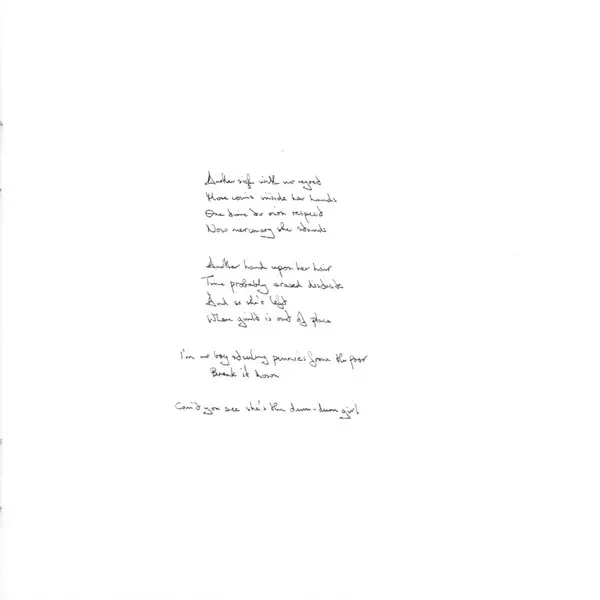 Another sigh with no regard
those coins inside her hands
One time her own respect
Now mercenary she stands
Another hand upon her hair
Time probably erased
And so she's left
Where guilt is out of place
I'm no boy stealing pennies from the poor
Break it down
Can't you see she's the dum-dum girl